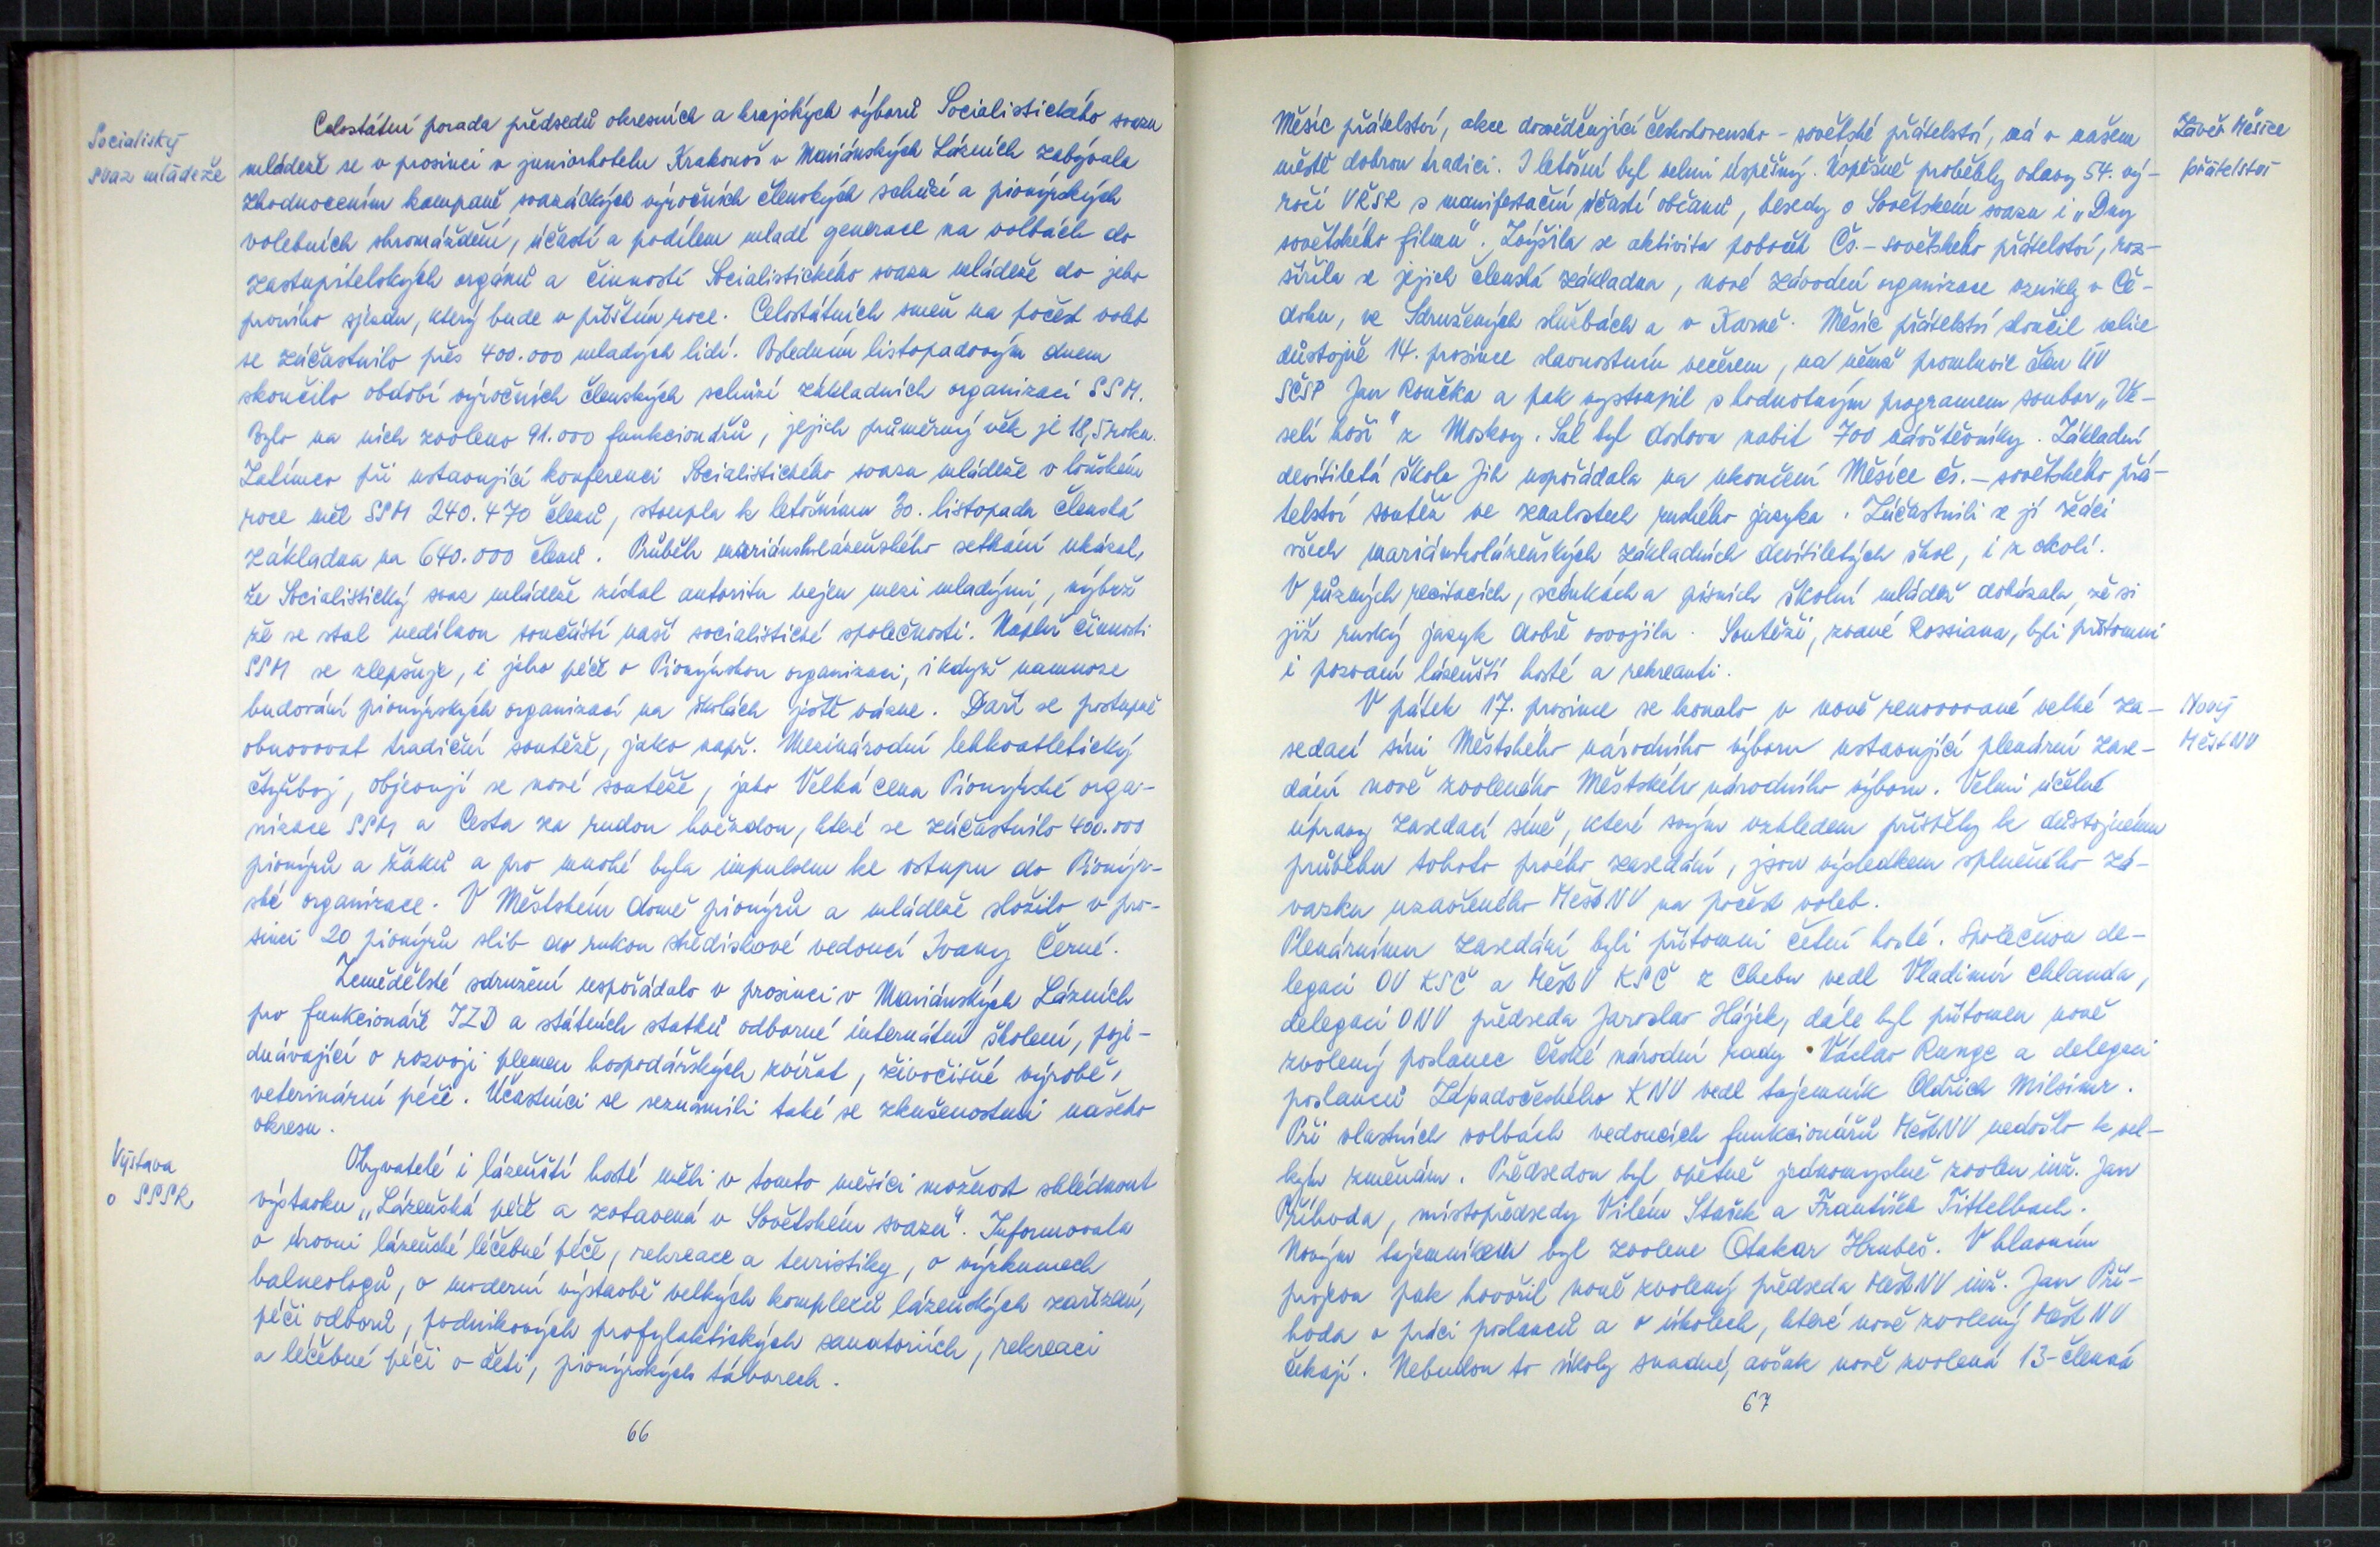 Socialiský
svaz mládeže
Celostátní porada předsedů okresních a krajských výborů Socialistického svazu
mládeže se v prosinci v juniorhotelu Krakonoš v Mariánských Lázních zabývala
zhodnocením kampaně svazáckých výročních členských schůzí a pionýrských
volebních shromáždění, účastí a podílem mladé generace na volbách do
zastupitelských orgánů a činností Socialistického svazu mládeže do jeho
prvního sjezdu, který bude v příštím roce. Celostátních směn na počest voleb
se zúčastnilo přes 400.000 mladých lidí. Posledním listopadovým dnem
skončilo období výročních členských schůzí základních organizací SSM.
Bylo na nich zvoleno 91.000 funkcionářů, jejich průměrný věk je 18,5 roku.
Zatímco při ustavující konferenci Socialistického svazu mládeže v loňském
roce měl SSM 240.470 členů, stoupla k letošnímu 30. listopadu členská
základna na 640.000 členů. Průběh mariánskolázeňského setkání ukázal,
že Socialistický svaz mládeže získal autoritu nejen mezi mladými, nýbrž
že se stal nedílnou součástí naší socialistické společnosti. Náplň činnosti
SSM se zlepšuje, i jeho péče o Pionýrskou organizaci, i když namnoze
budování pionýrských organizací na školách ještě vázne. Daří se postupně
obnovovat tradiční soutěže, jako např. Mezinárodní lehkoatletický
čtyřboj, objevují se nové soutěže, jako Velká cena Pionýrské orga-
nizace SSM a Cesta za rudou hvězdou, které se zúčastnilo 400.000
pionýrů a žáků a pro mnohé byla impulsem ke vstupu do Pionýr-
ské organizace. V Městském domě pionýrů a mládeže složilo v pro-
sinci 20 pionýrů slib do rukou střediskové vedoucí Ivany Černé.
Zemědělské sdružení uspořádalo v prosinci v Mariánských Lázních
pro funkcionáře JZD a státních statků odborné internátní školení, poje-
dnávající o rozvoji plemen hospodářských zvířat, živočišné výrobě,
veterinární péči. Účastníci se seznámili také se zkušenostmi našeho
okresu.
Výstava
o SSSR
Obyvatelé i lázeňští hosté měli v tomto měsíci možnost shlédnout
výstavku „Lázeňská péče a zotavená v Sovětském svazu“. Informovala
o úrovni lázeňské léčebné péče, rekreace a turistiky, o výzkumech
balneologů, o moderní výstavbě velkých komplexů lázeňských zařízení,
péči odborů, podnikových profylaktických sanatoriích, rekreaci
a léčebné péči o děti, pionýrských táborech.
66
Závěr Měsíce
přátelství
Měsíc přátelství, akce dosvědčující československo-sovětské přátelství, má v našem
městě dobrou tradici. I letošní byl velmi úspěšný. Úspěšně proběhly oslavy 54. vý-
ročí VŘSR s manifestační účastí občanů, besedy o Sovětském svazu i „Dny
sovětského filmu“. Zvýšila se aktivita poboček Čs.-sovětského přátelství, roz-
šířila se jejich členská základna, nové závodní organizace vznikly v Če-
doku, ve Sdružených službách a v Karně. Měsíc přátelství skončil velice
důstojně 14. prosince slavnostním večerem, na němž promluvil člen ÚV
SČSP Jan Roučka a pak vystoupil s hodnotným programem soubor „Ve-
selí hoši“ z Moskvy. Sál byl doslova nabit 700 návštěvníky. Základní
devítiletá škola Jih uspořádala na ukončení Měsíce čs.-sovětského přá-
telství soutěž ve znalostech ruského jazyka. Zúčastnili se jí žáci
všech mariánskolázeňských základních devítiletých škol, i z okolí.
V různých recitacích, scénkách a písních školní mládež dokázala, že si
již ruský jazyk dobře osvojila. Soutěži, zvané Rossiana, byli přítomni
i pozvaní lázeňští hosté a rekreanti.
Nový
MěstNV
V pátek 17. prosince se konalo v nově renovované velké za-
sedací síni Městského národního výboru ustavující plenární zase-
dání nově zvoleného Městského národního výboru. Velmi účelné
úpravy zasedací síně, které svým vzhledem přispěly k důstojnému
průběhu tohoto prvého zasedání, jsou výsledkem splněného zá-
vazku uzavřeného MěstNV na počest voleb.
Plenárnímu zasedání byli přítomni četní hosté. Společnou de-
legaci OV KSČ a MěstV KSČ z Chebu vedl Vladimír Chlanda,
delegaci ONV předseda Jaroslav Hájek, dále byl přítomen nově
zvolený poslanec České národní rady Václav Runge a delegaci
poslanců Západočeského KNV vedl tajemník Oldřich Milsimr.
Při vlastních volbách vedoucích funkcionářů MěstNV nedošlo k vel-
kým změnám. Předsedou byl opětně jednomyslně zvolen inž. Jan
Příhoda, místopředsedy Vilém Stašek a František Tittelbach.
Novým tajemníkem byl zvolene Otakar Hrubeš. V hlavním
projevu pak hovořil nově zvolený předseda MěstNV inž. Jan Pří-
hoda o práci poslanců a o úkolech, které nově zvolený MěstNV
čekají. Nebudou to úkoly snadné, avšak nově zvolená 13-členná
67